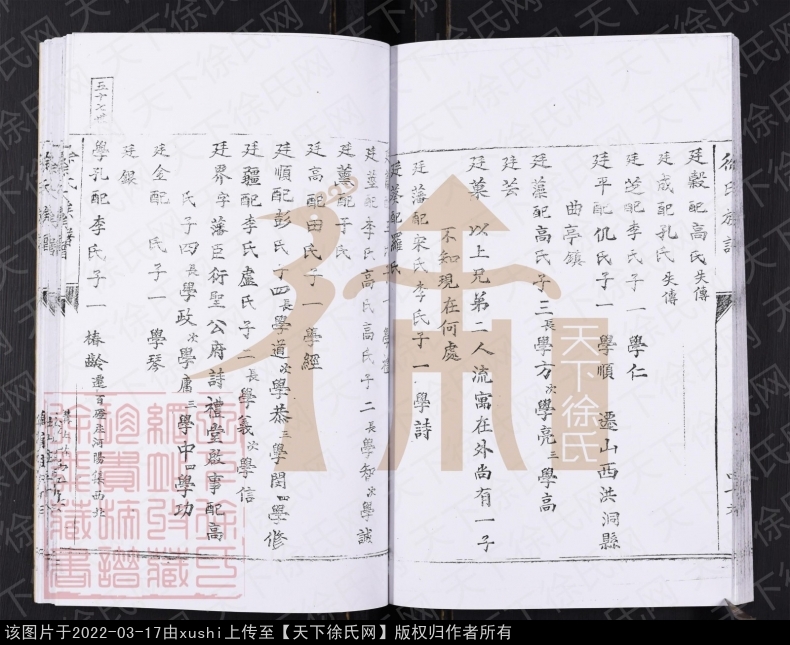 徐氏族譜
廷穀配高氏失傳
廷成配孔氏失傳
廷芝配李氏子一 學仁
廷平配仉氏子一 學順 遷山西洪洞縣
曲亭鎮
廷藻配高氏子三長學方次學亮三學高
廷芸
廷菓 以上兄弟二人流寓在外尚有一子
不知現在何處
廷藩配宋氏李氏子一 學詩
廷葵配羅氏
廷莖配李氏高氏高氏子二長學智次學誠
廷薰配于氏
廷高配田氏子一 學經
廷順配彭氏子四長學道次學恭三學閔四學修
廷疆配李氏盧氏子二長學義次學信
廷界字藩臣衍聖公府詩禮堂啟事配高
氏子四長學政次學庸三學中四學功
廷金配 氏子一 學琴
廷銀
五十七世
學孔配李氏子一 椿齡遷
河陽集西北
天下徐氏
该图片于2022-03-17由xushi上传至【天下徐氏网】版权归作者所有